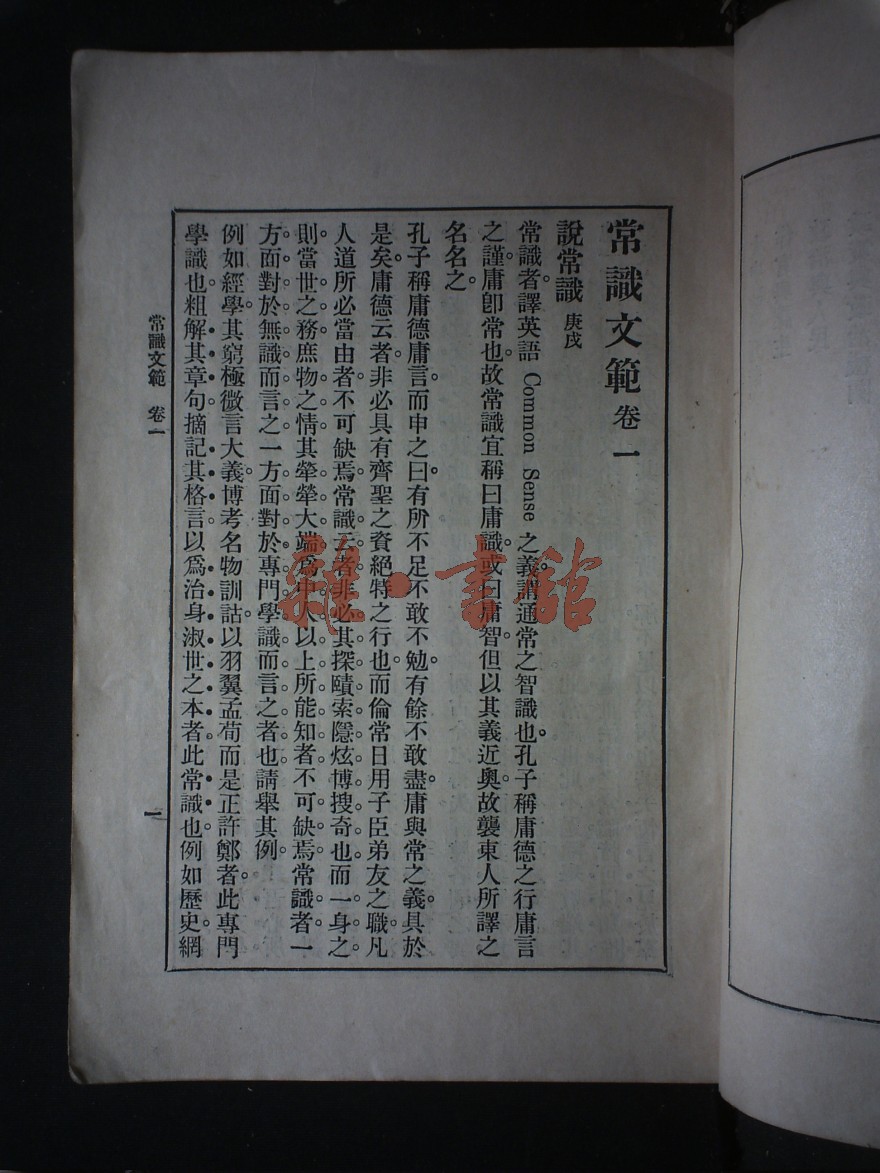 常識文範 卷一
說常識 庚戌
常識者。譯英語 Common Sense 之義。謂通常之智識也。孔子稱庸德之行。庸言
之謹。庸卽常也。故常識宜稱曰庸識。或曰庸智。但以其義近奧。故襲東人所譯之
名名之。
孔子稱庸德庸言。而申之曰。有所不足。不敢不勉。有餘不敢盡。庸與常之義。具於
是矣。庸德云者。非必具有齊聖之資。絕特之行也。而倫常日用。子臣弟友之職。凡
人道所必當由者。不可缺焉。常識云者。非必其探賾索隱。炫博搜奇也。而一身之
則。當世之務。庶物之情。其犖犖大端。爲中人以上所能知者。不可缺焉。常識者。一
方面對於無識而言之。一方面對於專門學識而言之者也。請舉其例。
例如經學。其窮極微言大義。博考名物訓詁。以羽翼孟荀而是正許鄭者。此專門
學識也。粗解其章句。摘記其格言。以爲治身淑世之本者。此常識也。例如歷史。網
常識文範 卷一
一
雜·書館